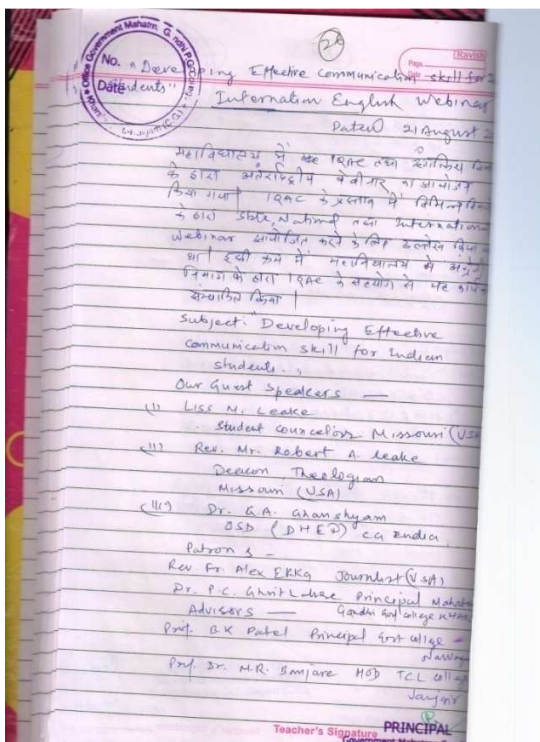 26
Ravish
Page
Date
Office Government Mahatma Gandhi P.G. College
No.
Date
Kharsia
C.G.
"Developing Effective Communication skill for
Students"
Internation English Webinar
Dated 21 August 2
महाविद्यालय में IQAC तथा
के द्वारा अंतर्राष्ट्रीय वेबीनार का आयोजन
किया गया। IQAC के प्रस्ताव में विभिन्न
के द्वारा State, National तथा International
Webinar आयोजित करने के लिए उल्लेख किया
था। इसी क्रम में महाविद्यालय में अंग्रेजी
विभाग के द्वारा IQAC के सहयोग से यह
संचालित किया।
Subject. "Developing Effective
Communication skill for Indian
Students."
Our Guest Speakers —
(I) Liss M. Leake
Student Councelors Missouri (USA
(II) Rev. Mr. Robert A. leake
Deacon Theologian
Missouri (USA)
(III) Dr. G.A. Ghanshyam
OSD (DHE) CG India,
Patrons -
Rev. Fr. Alex EKKa Journlist (USA)
Dr. P.C. Ghrit Lahre Principal Mahatma
Advisors — Gandhi Govt college
Prof. B.K Patel Principal Govt College -
Prof. Dr. M.R. Banjare HOD TCL
Teacher's Signature
PRINCIPAL
Government